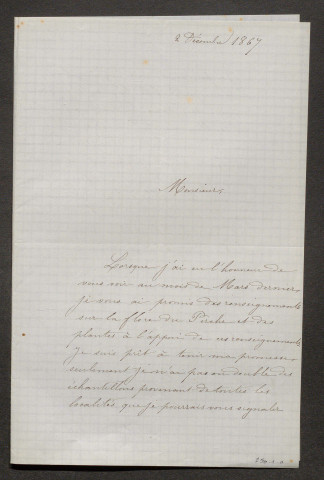 2 Décembre 1867
Monsieur,
Lorsque j'ai eu l'honneur de
vous voir au mois de Mars dernier
je vous ai promis des renseignements
sur la flore du Perche et des
plantes à l'appui de ces renseignements
Je suis prêt à tenir ma promesse,
seulement je n'ai pas en double des
échantillons provenant de toutes les
localités que je pourrais vous signaler